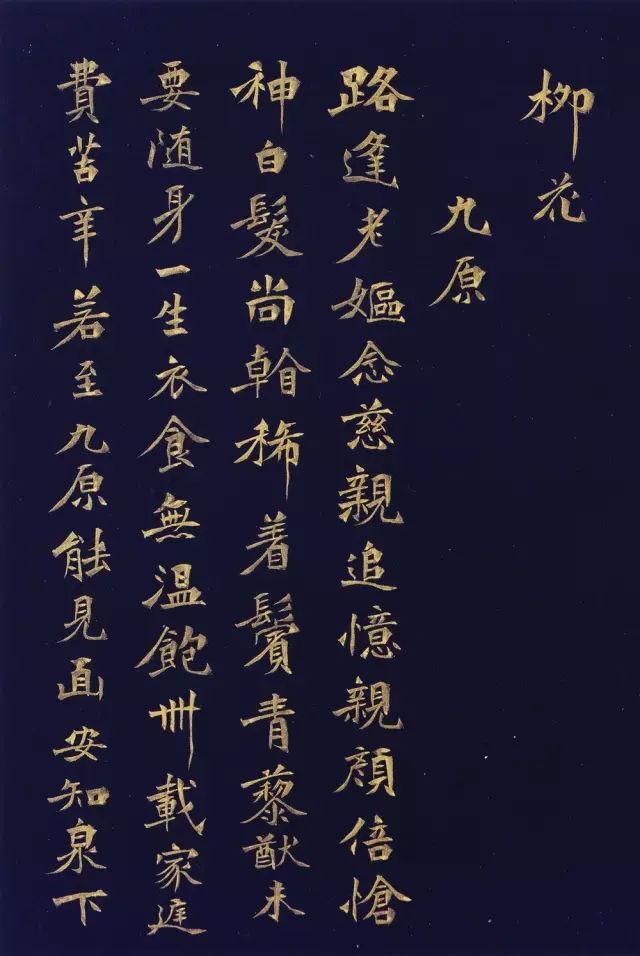 柳花
九原
路逢老嫗念慈親追憶親顔倍愴
神白髮尚稀着鬢青藜猷未
要随身一生衣食無温飽卌載家庭
費苦辛若至九原能見面安知泉下